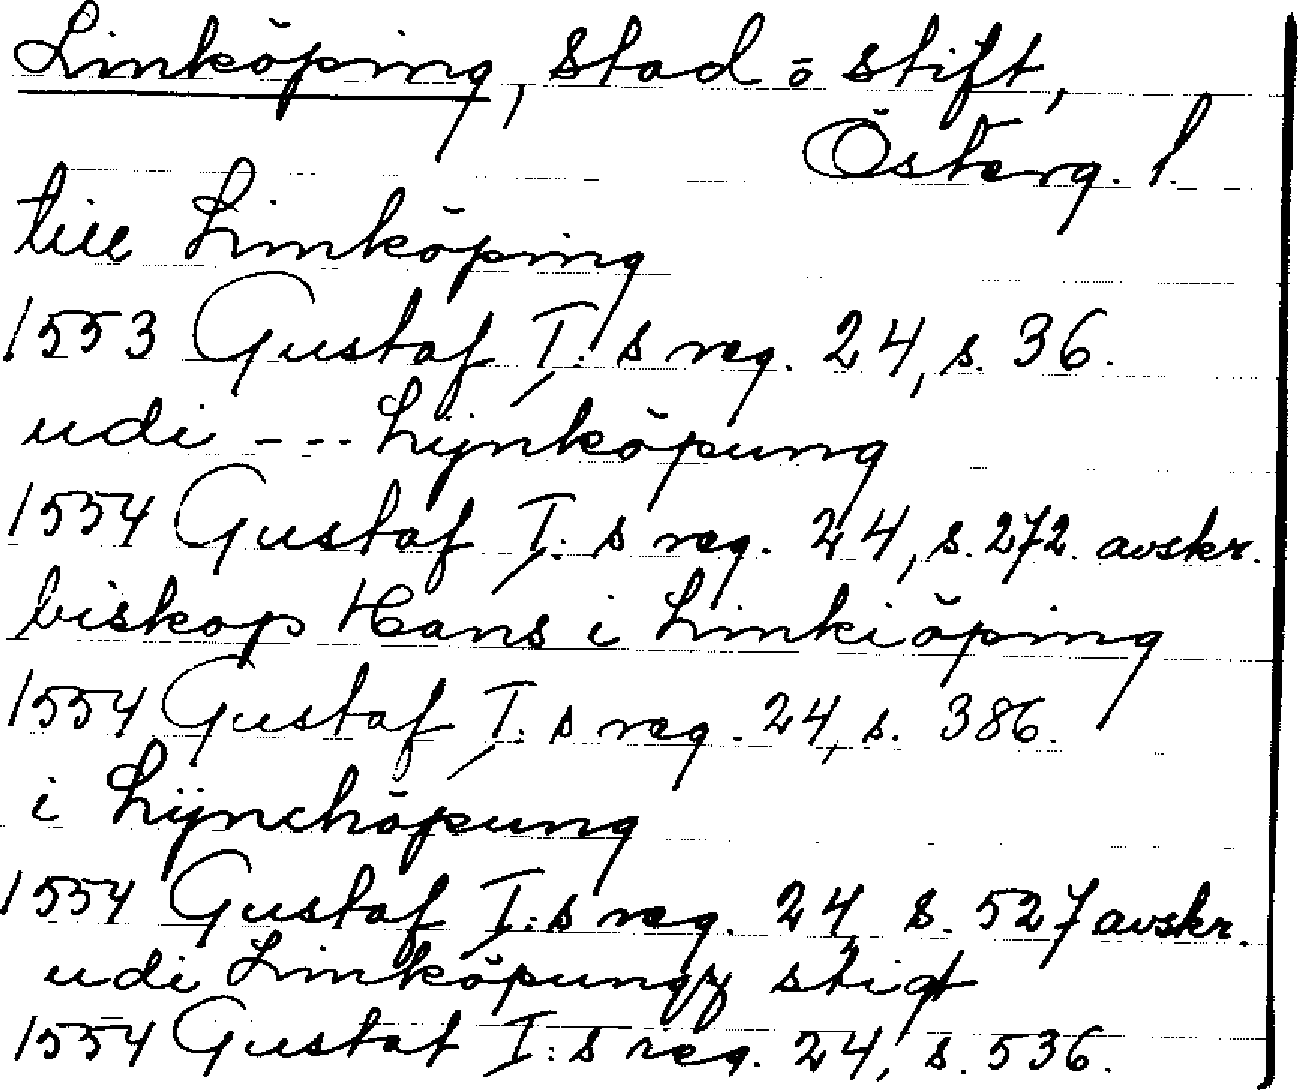 Linköping, stad o stift,
Österg. l.
till Linköping
1553 Gustaf I:s reg. 24, s. 36.
udi --- Lijnköpung
1554 Gustaf I:s reg. 24, s. 272. avskr.
biskop Hans i Linkiöping
1554 Gustaf I:s reg. 24, s. 386.
i Lijnchöpung
1554 Gustaf I:s reg. 24, s. 527 avskr.
udi Linköpungz stigt
1554 Gustaf I:s reg. 24, s. 536.